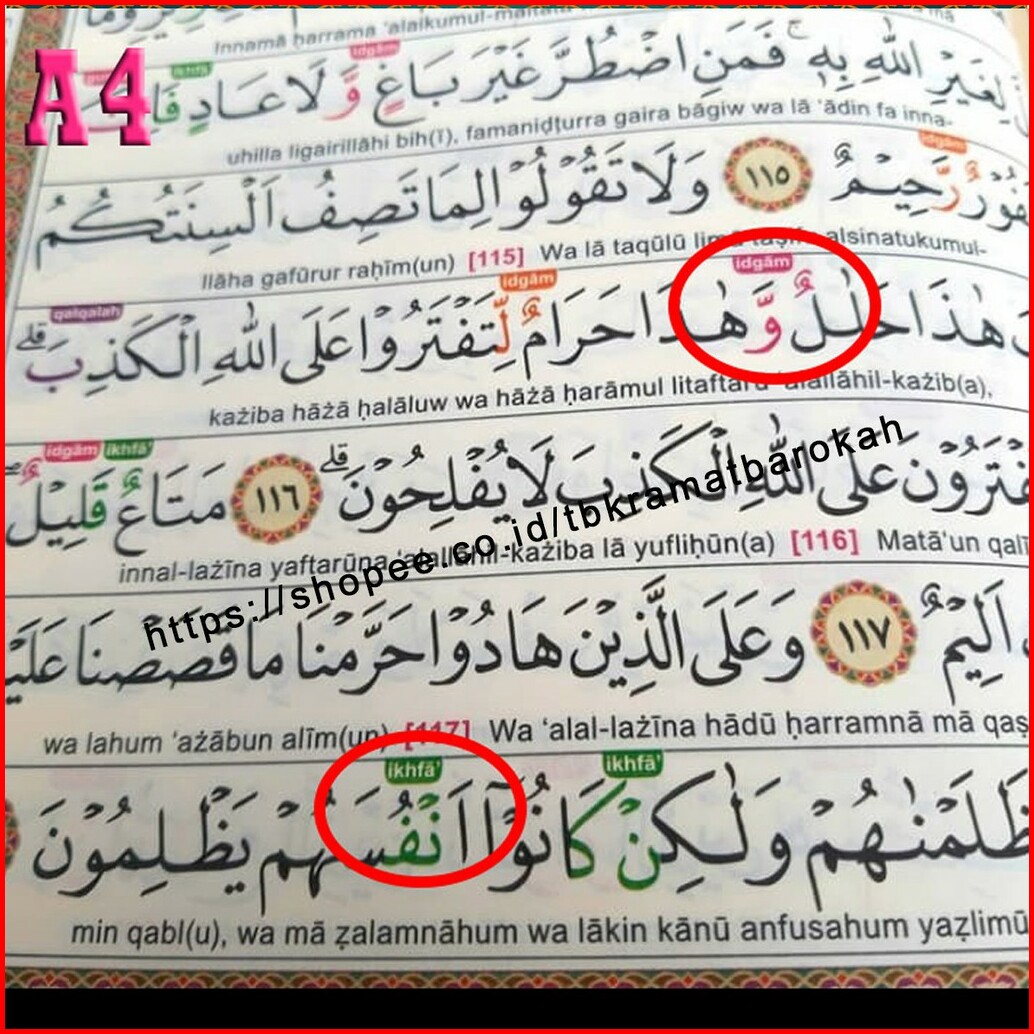 A4
Innamā ḥarrama 'alaikumul-maitata
idgām
ikhfā'
لِغَيْرِ اللّٰهِ بِهٖۚ فَمَنِ اضْطُرَّ غَيْرَ بَاغٍ وَّلَا عَادٍ
uhilla ligairillāhi bih(ī), famaniḍṭurra gaira bāgiw wa lā 'ādin fa inna-
idgām
رَّحِيْمٌ ١١٥ وَلَا تَقُوْلُوْا لِمَا تَصِفُ اَلْسِنَتُكُمُ
llāha gafūrur raḥīm(un) [115] Wa lā taqūlū limā taṣifu alsinatukumul-
idgām
idgām
qalqalah
هٰذَا حَلٰلٌ وَّهٰذَا حَرَامٌ لِّتَفْتَرُوْا عَلَى اللّٰهِ الْكَذِبَۗ
każiba hāżā ḥalāluw wa hāżā ḥarāmul litaftarū 'alallāhil-każib(a),
idgām ikhfā'
عَلَى اللّٰهِ الْكَذِبَ لَا يُفْلِحُوْنَۗ ١١٦ مَتَاعٌ قَلِيْلٌ
innal-lażīna yaftarūna 'alallāhil-każiba lā yufliḥūn(a) [116] Matā'un
https://shopee.co.id/tbkramatbarokah
اَلِيْمٌ ١١٧ وَعَلَى الَّذِيْنَ هَادُوْا حَرَّمْنَا مَا قَصَصْنَا
wa lahum 'ażābun alīm(un) [117] Wa 'alal-lażīna hādū ḥarramnā mā
ikhfā'
ikhfā'
وَلٰكِنْ كَانُوْٓا اَنْفُسَهُمْ يَظْلِمُوْنَ
min qabl(u), wa mā ẓalamnāhum wa lākin kānū anfusahum yaẓlimū